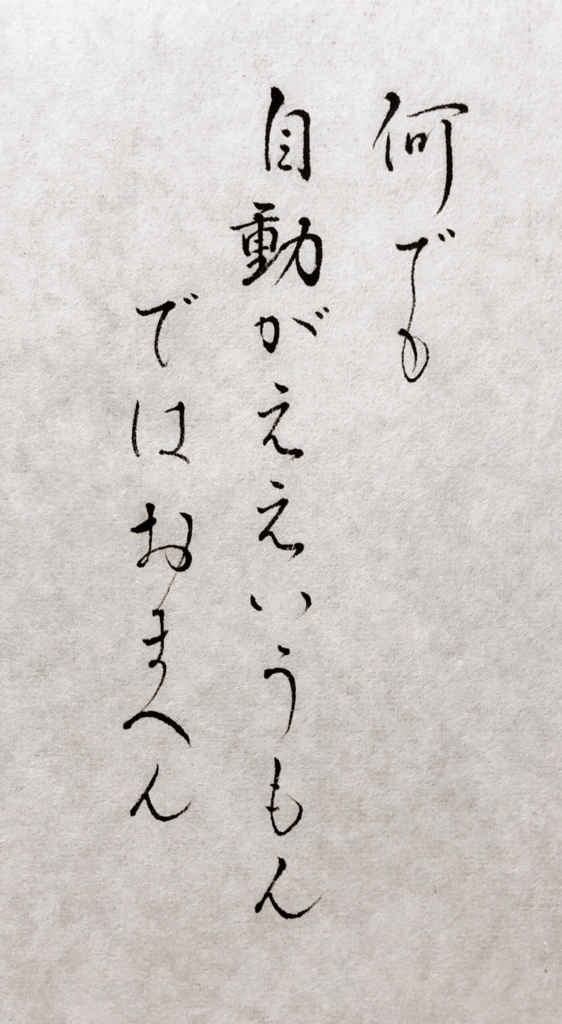 何でも
自動がええいうもん
ではおまへん